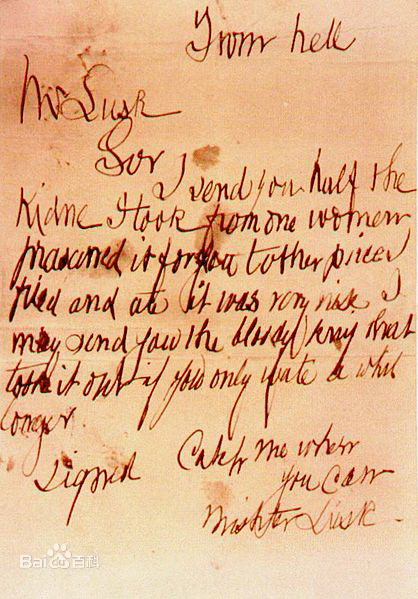 From hell
Mr Lusk
Sor
I send you half the
Kidne I took from one women
prasarved it for you tother piece I
fried and ate it was very nise I
may send you the bloody knif that
took it out if you only wate a whil
longer.
signed
Catch me when
you can
Mishter Lusk
Bai百科